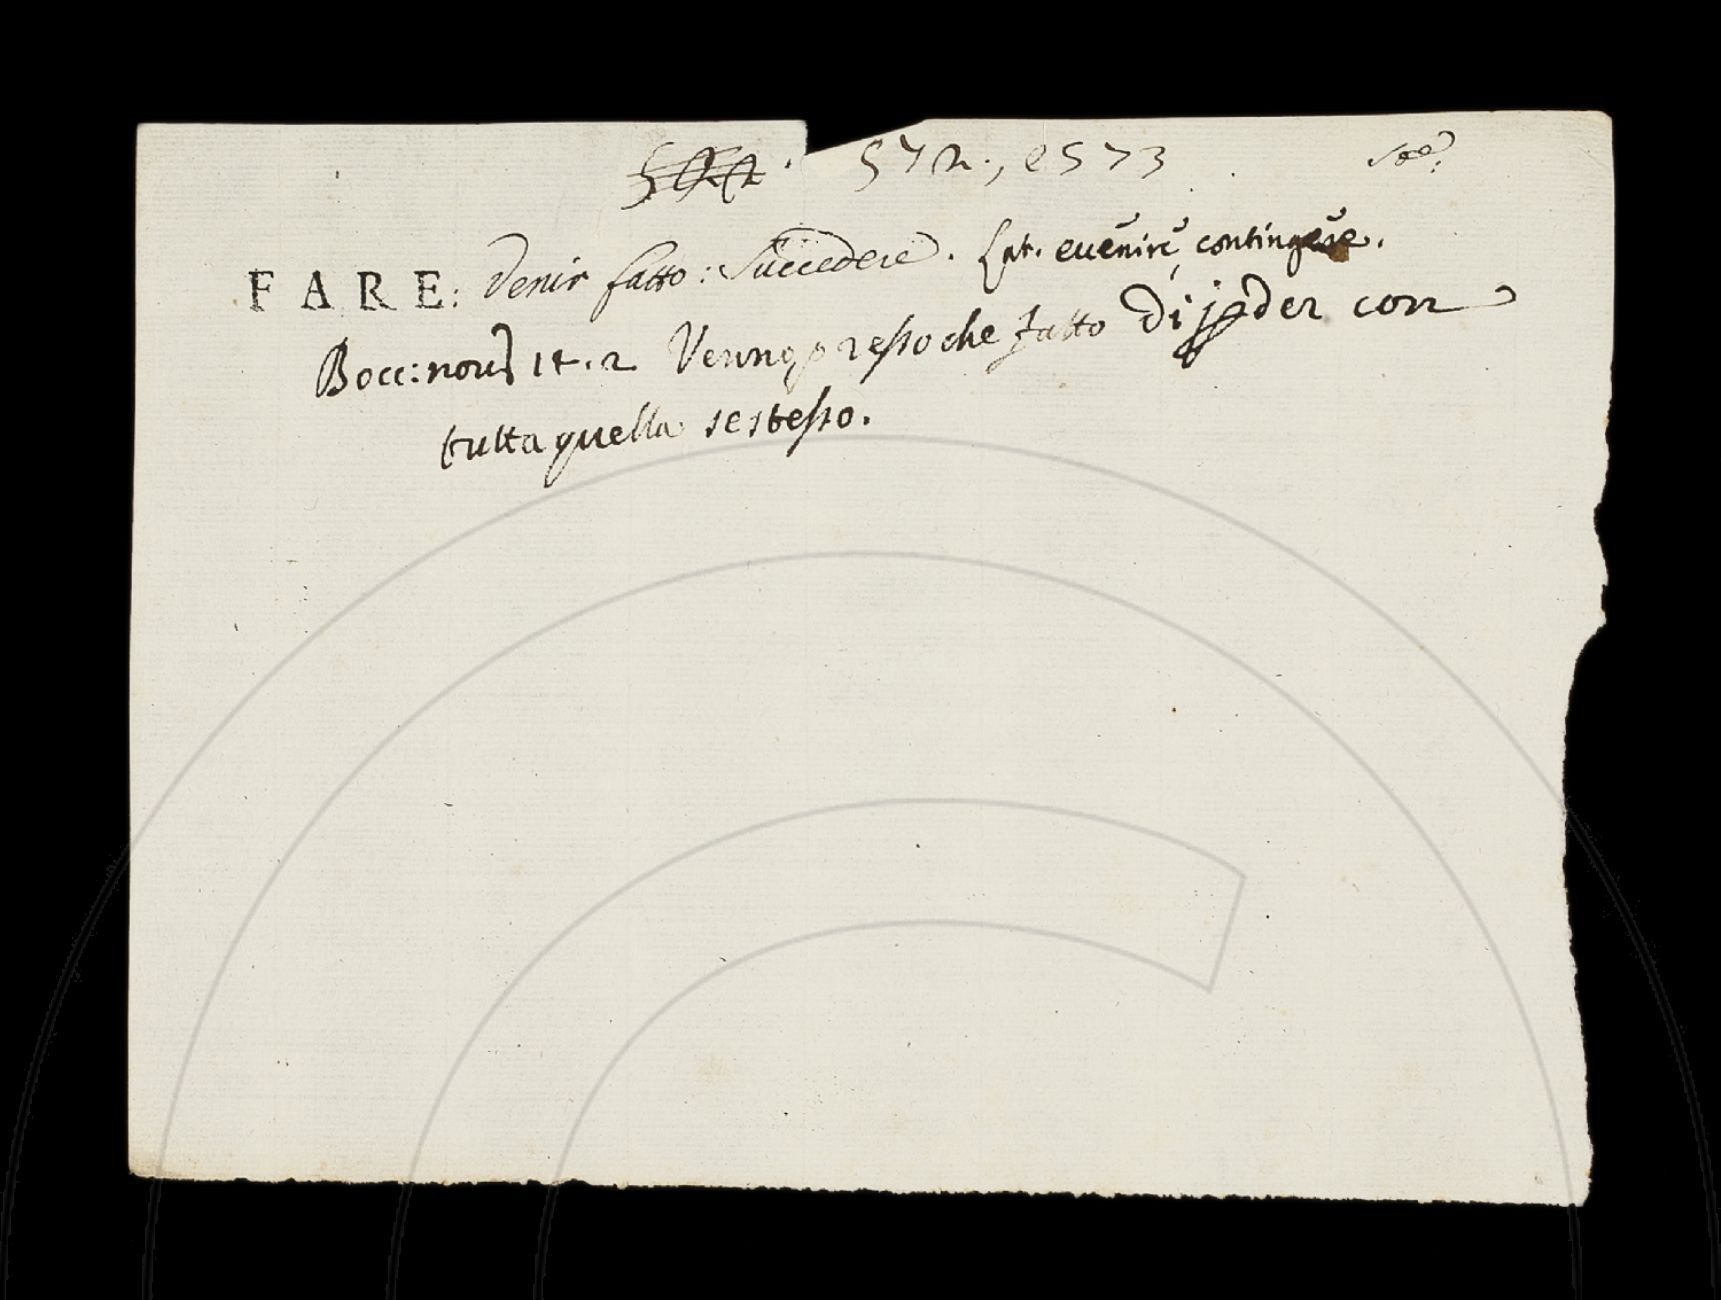 572., e 573
FARE: Venir fatto: Succedere. Lat. euenire, contingere.
Bocc: nou 14.2 Venne presso che fatto di perder con
tutta quella se stesso.